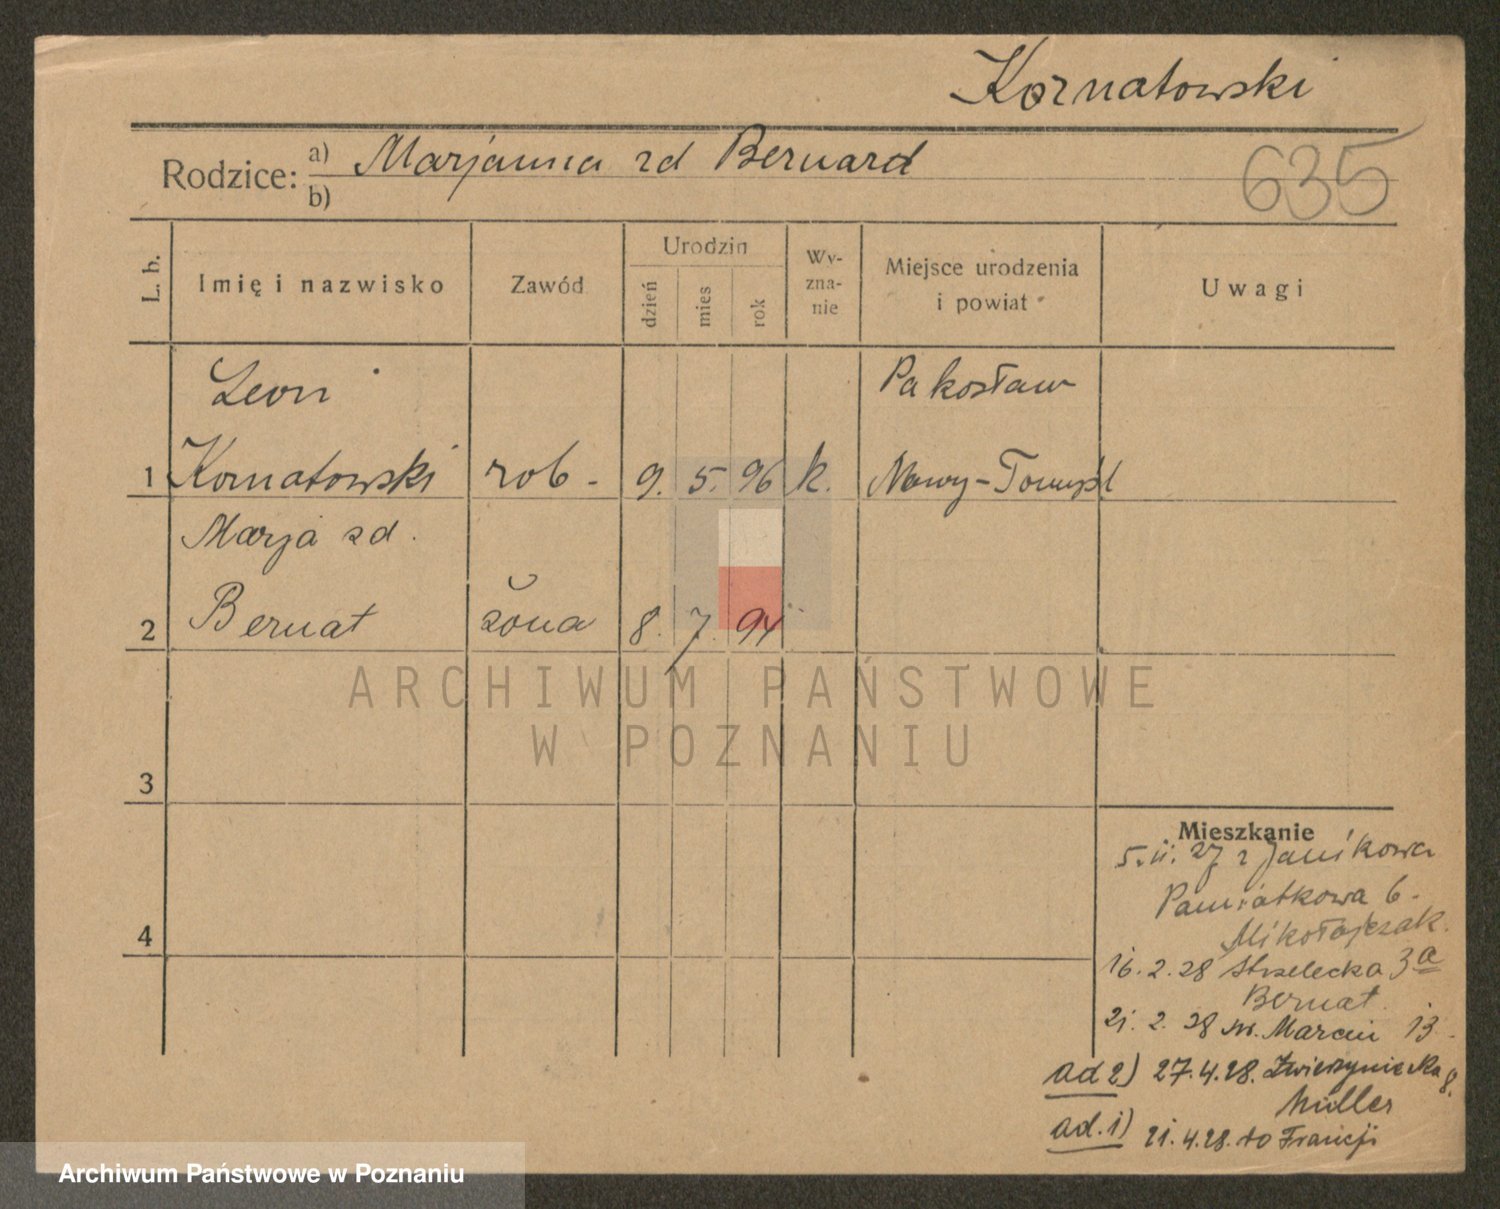 Kornatowski
Rodzice: a) Marjanna zd Bernard
b)
635
L. b.
Imię i nazwisko
Zawód
Urodzin
dzień
mies
rok
Wy-
zna-
nie
Miejsce urodzenia
i powiat
Uwagi
Leon
Pakosław
1 Kornatowski rob - 9. 5. 96 k. Nowy-Tomyśl
Marja zd.
2 Bernat żona 8. 7. 94
3
4
Mieszkanie
5. 11. 27 z Janikowa
Pamiątkowa 6.
Mikołajczak.
16. 2. 28 Strzelecka 3a
Bernat.
21. 2. 28 św. Marcin 13
ad 2) 27.4.28. Zwierzyniecka 8.
Müller
ad. 1) 21.4.28. do Francji
ARCHIWUM PAŃSTWOWE
W POZNANIU
Archiwum Państwowe w Poznaniu